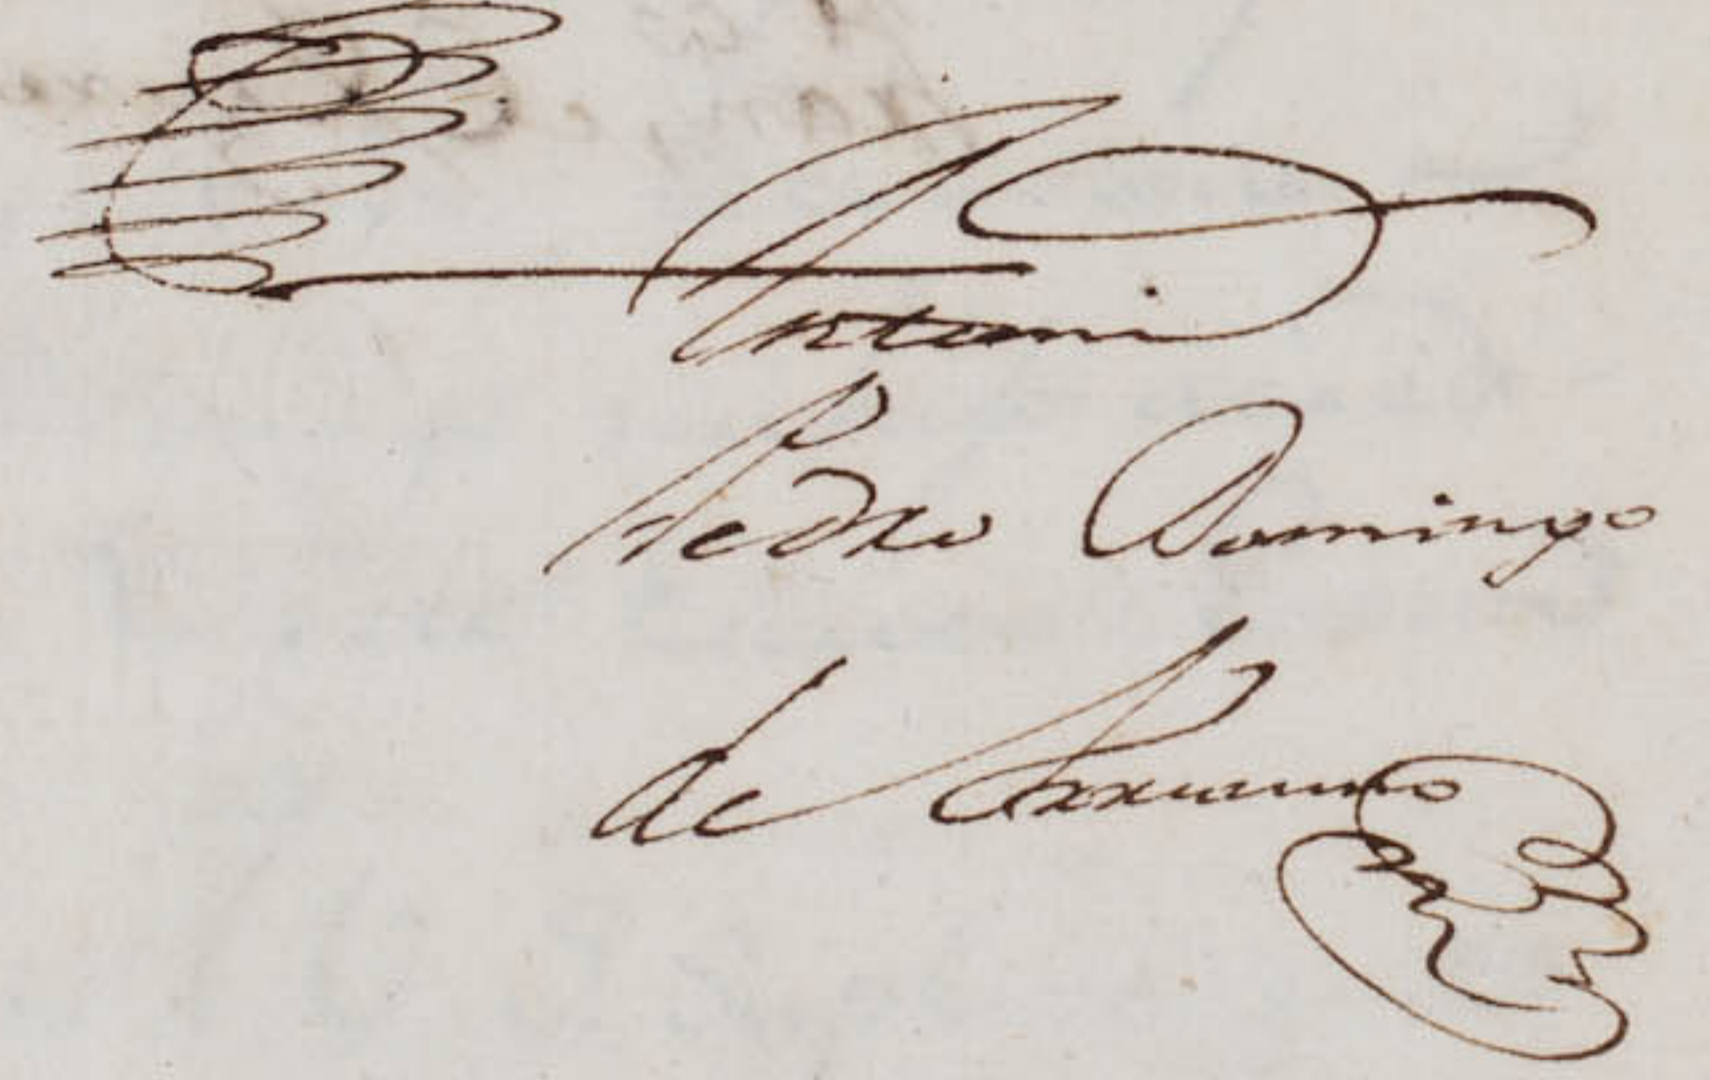 Antonio
Pedro Domingo
de